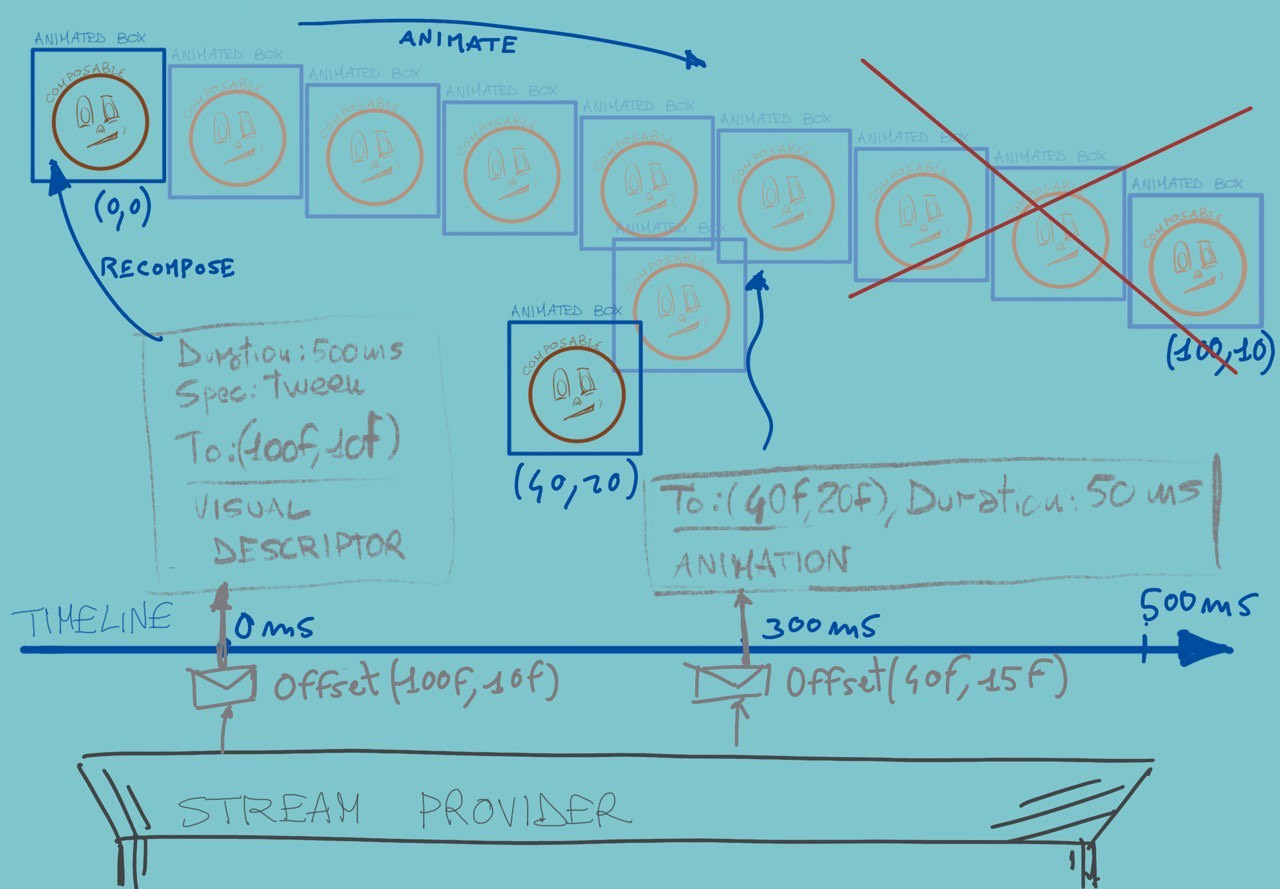 ANIMATED BOX
COMPOSABLE
(0,0)
ANIMATED BOX
COMPOSABLE
ANIMATED BOX
COMPOSABLE
ANIMATE
ANIMATED BOX
COMPOSABLE
ANIMATED BOX
COMPOSABLE
ANIMATED BOX
COMPOSABLE
ANIMATED BOX
COMPOSABLE
ANIMATED BOX
COMPOSABLE
ANIMATED BOX
COMPOSABLE
(100,10)
RECOMPOSE
ANIMATED BOX
COMPOSABLE
ANIMATED BOX
COMPOSABLE
(40,20)
Duration: 500ms
Spec: Tween
To:(100f,10f)
VISUAL
DESCRIPTOR
To:(40f,20f), Duration: 50ms
ANIMATION
TIMELINE
0ms
300ms
500ms
Offset(100f,10f)
Offset(40f,15f)
STREAM PROVIDER